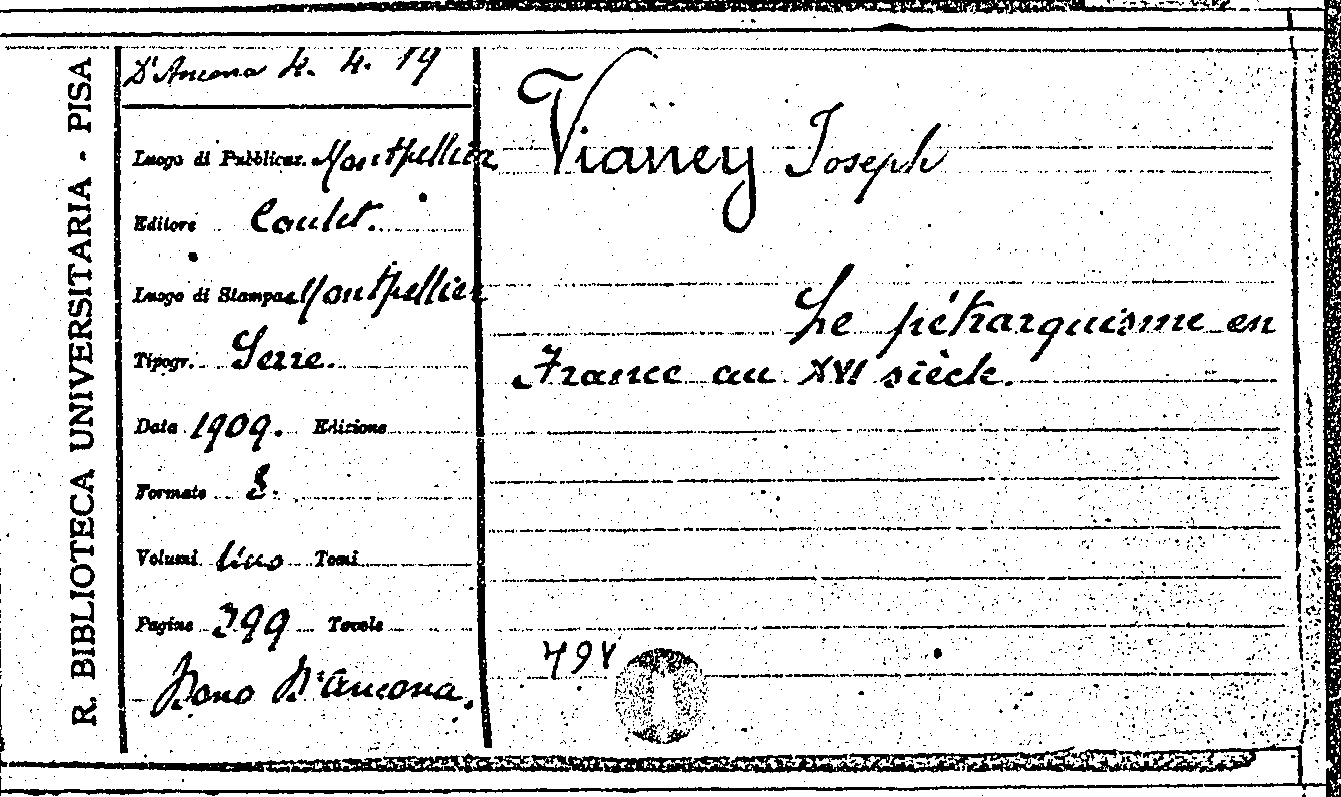 R. BIBLIOTECA UNIVERSITARIA - PISA
D'Ancona 4. 4. 19
Luogo di Pubblicaz. Montpellier
Editore Coulet.
Luogo di Stampa Montpellier
Tipogr. Serre.
Data 1909. Edizione
Formato 8.
Volumi Uno Tomi
Pagine 399 Tavole
Dono D'Ancona.
Vianey Joseph
Le pétrarquisme en
France au XVI siècle.
494